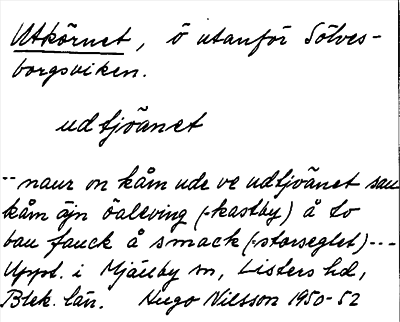 Utkörnet, ö utanför Sölves-
borgsviken.
udtjöänet
-- naur on kåm ude ve udtjöänet sau
kåm äjn öaleving (-kastby) å to
bau fauck å smack (-storseglet) ---
Uppt. i Mjällby sn, Listers hd,
Blek. län. Hugo Nilsson 1950-52